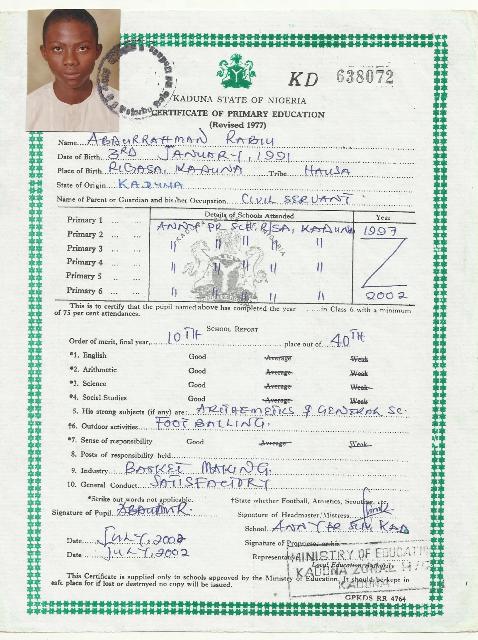 KD 638072
KADUNA STATE OF NIGERIA
CERTIFICATE OF PRIMARY EDUCATION
(Revised 1977)
Name ABDURRAHMAN RABIU
Date of Birth 3RD JANUARY, 1991
Place of Birth RIGASA, KADUNA Tribe HAUSA
State of Origin KADUNA
Name of Parent or Guardian and his/her Occupation CIVIL SERVANT
Details of Schools Attended Year
Primary 1
Primary 2 KADUNA 1997
Primary 3 " " " "
Primary 4
Primary 5 " " " "
Primary 6 " " " " 2002
This is to certify that the pupil named above has completed the year in Class 6 with a minimum
of 75 per cent attendances.
SCHOOL REPORT
Order of merit, final year, 10TH place out of 40TH
*1. English Good Average Weak
*2. Arithmetic Good Average Weak
*3. Science Good Average Weak
*4. Social Studies Good Average Weak
5. His strong subjects (if any) are: ARITHEMETICS & GENERAL SC.
†6. Outdoor activities FOOT BALLING.
*7. Sense of responsibility Good Average Weak
8. Posts of responsibility held
9. Industry BASKET MAKING.
10. General Conduct SATISFACTORY
*Strike out words not applicable. †State whether Football, Athletics, Scouting, etc.
Signature of Pupil Signature of Headmaster/Mistress
School
Date JULY, 2002 Signature of Proprietor
Date JULY, 2002 Representative
Local Education Authority
MINISTRY OF EDUCATION
KADUNA ZONAL
KADUNA
This Certificate is supplied only to schools approved by the Ministry of Education. It should be kept in
safe place for if lost or destroyed no copy will be issued.
GPKDS RR 4764